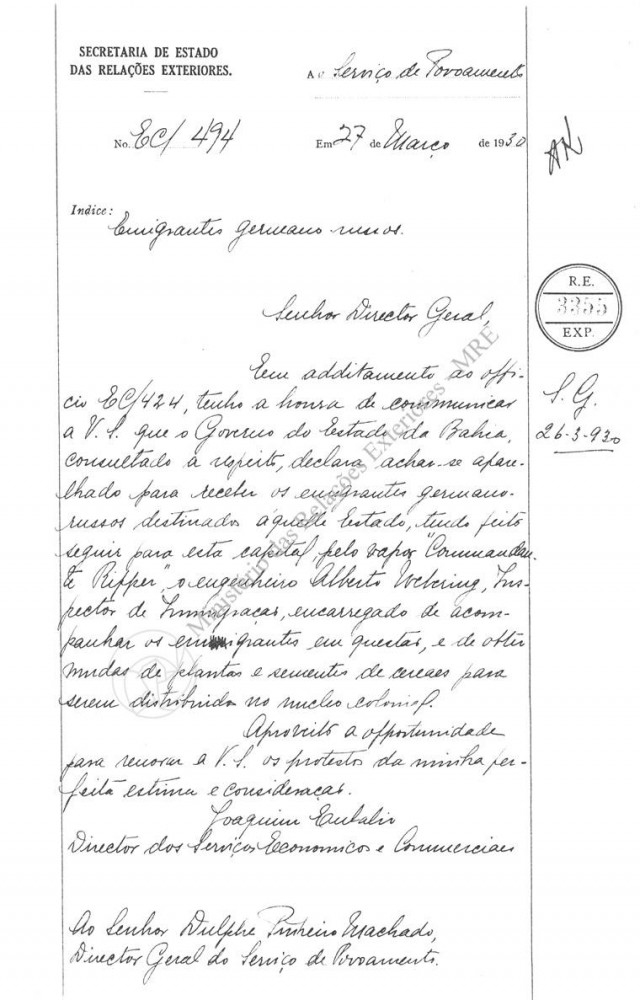 SECRETARIA DE ESTADO
DAS RELAÇÕES EXTERIORES.
Ao Serviço de Povoamento
No. EC/494
Em 27 de Março de 1930
AK
Indice:
Emigrantes germano russos.
R.E.
3355
EXP.
Senhor Director Geral,
Em additamento ao offi-
cio EC/424, tenho a honra de communicar
a V. S. que o Governo do Estado da Bahia,
consultado a respeito, declara achar-se apare-
lhado para receber os emigrantes germano-
russos destinados áquelle Estado, tendo feito
seguir para esta capital, pelo vapor "Commandan-
te Ripper", o engenheiro Alberto Ins-
pector de Immigração, encarregado de acom-
panhar os emigrantes em questão, e de obter
mudas de plantas e sementes de cereaes para
serem distribuidas no nucleo colonial.
Aproveito a opportunidade
para renovar a V. S. os protestos da minha per-
feita estima e consideração.
Joaquim Eulalio
Director dos Serviços Economicos e Commerciaes
Ao Senhor Dulphe Pinheiro Machado,
Director Geral do Serviço de Povoamento.
S. G.
26-3-930
Ministério das Relações Exteriores - MRE